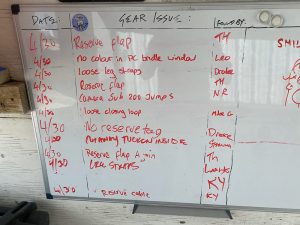 DATE: GEAR ISSUE: FOUND BY:
4/30 Reserve flap TH
4/30 no colour in PC bridle window Leo
4/30 loose leg straps Drake
4/30 Reserve flap TH
4/30 Camera Sub 200 Jumps NR
4/30 loose closing loop
4/30 No reserve tag Drake
4/30 TUCKED INSIDE
4/30 Reserve flap Again TH
4/30 LEG STRAPS
KY
4/30 Reserve cable KY
SMIL